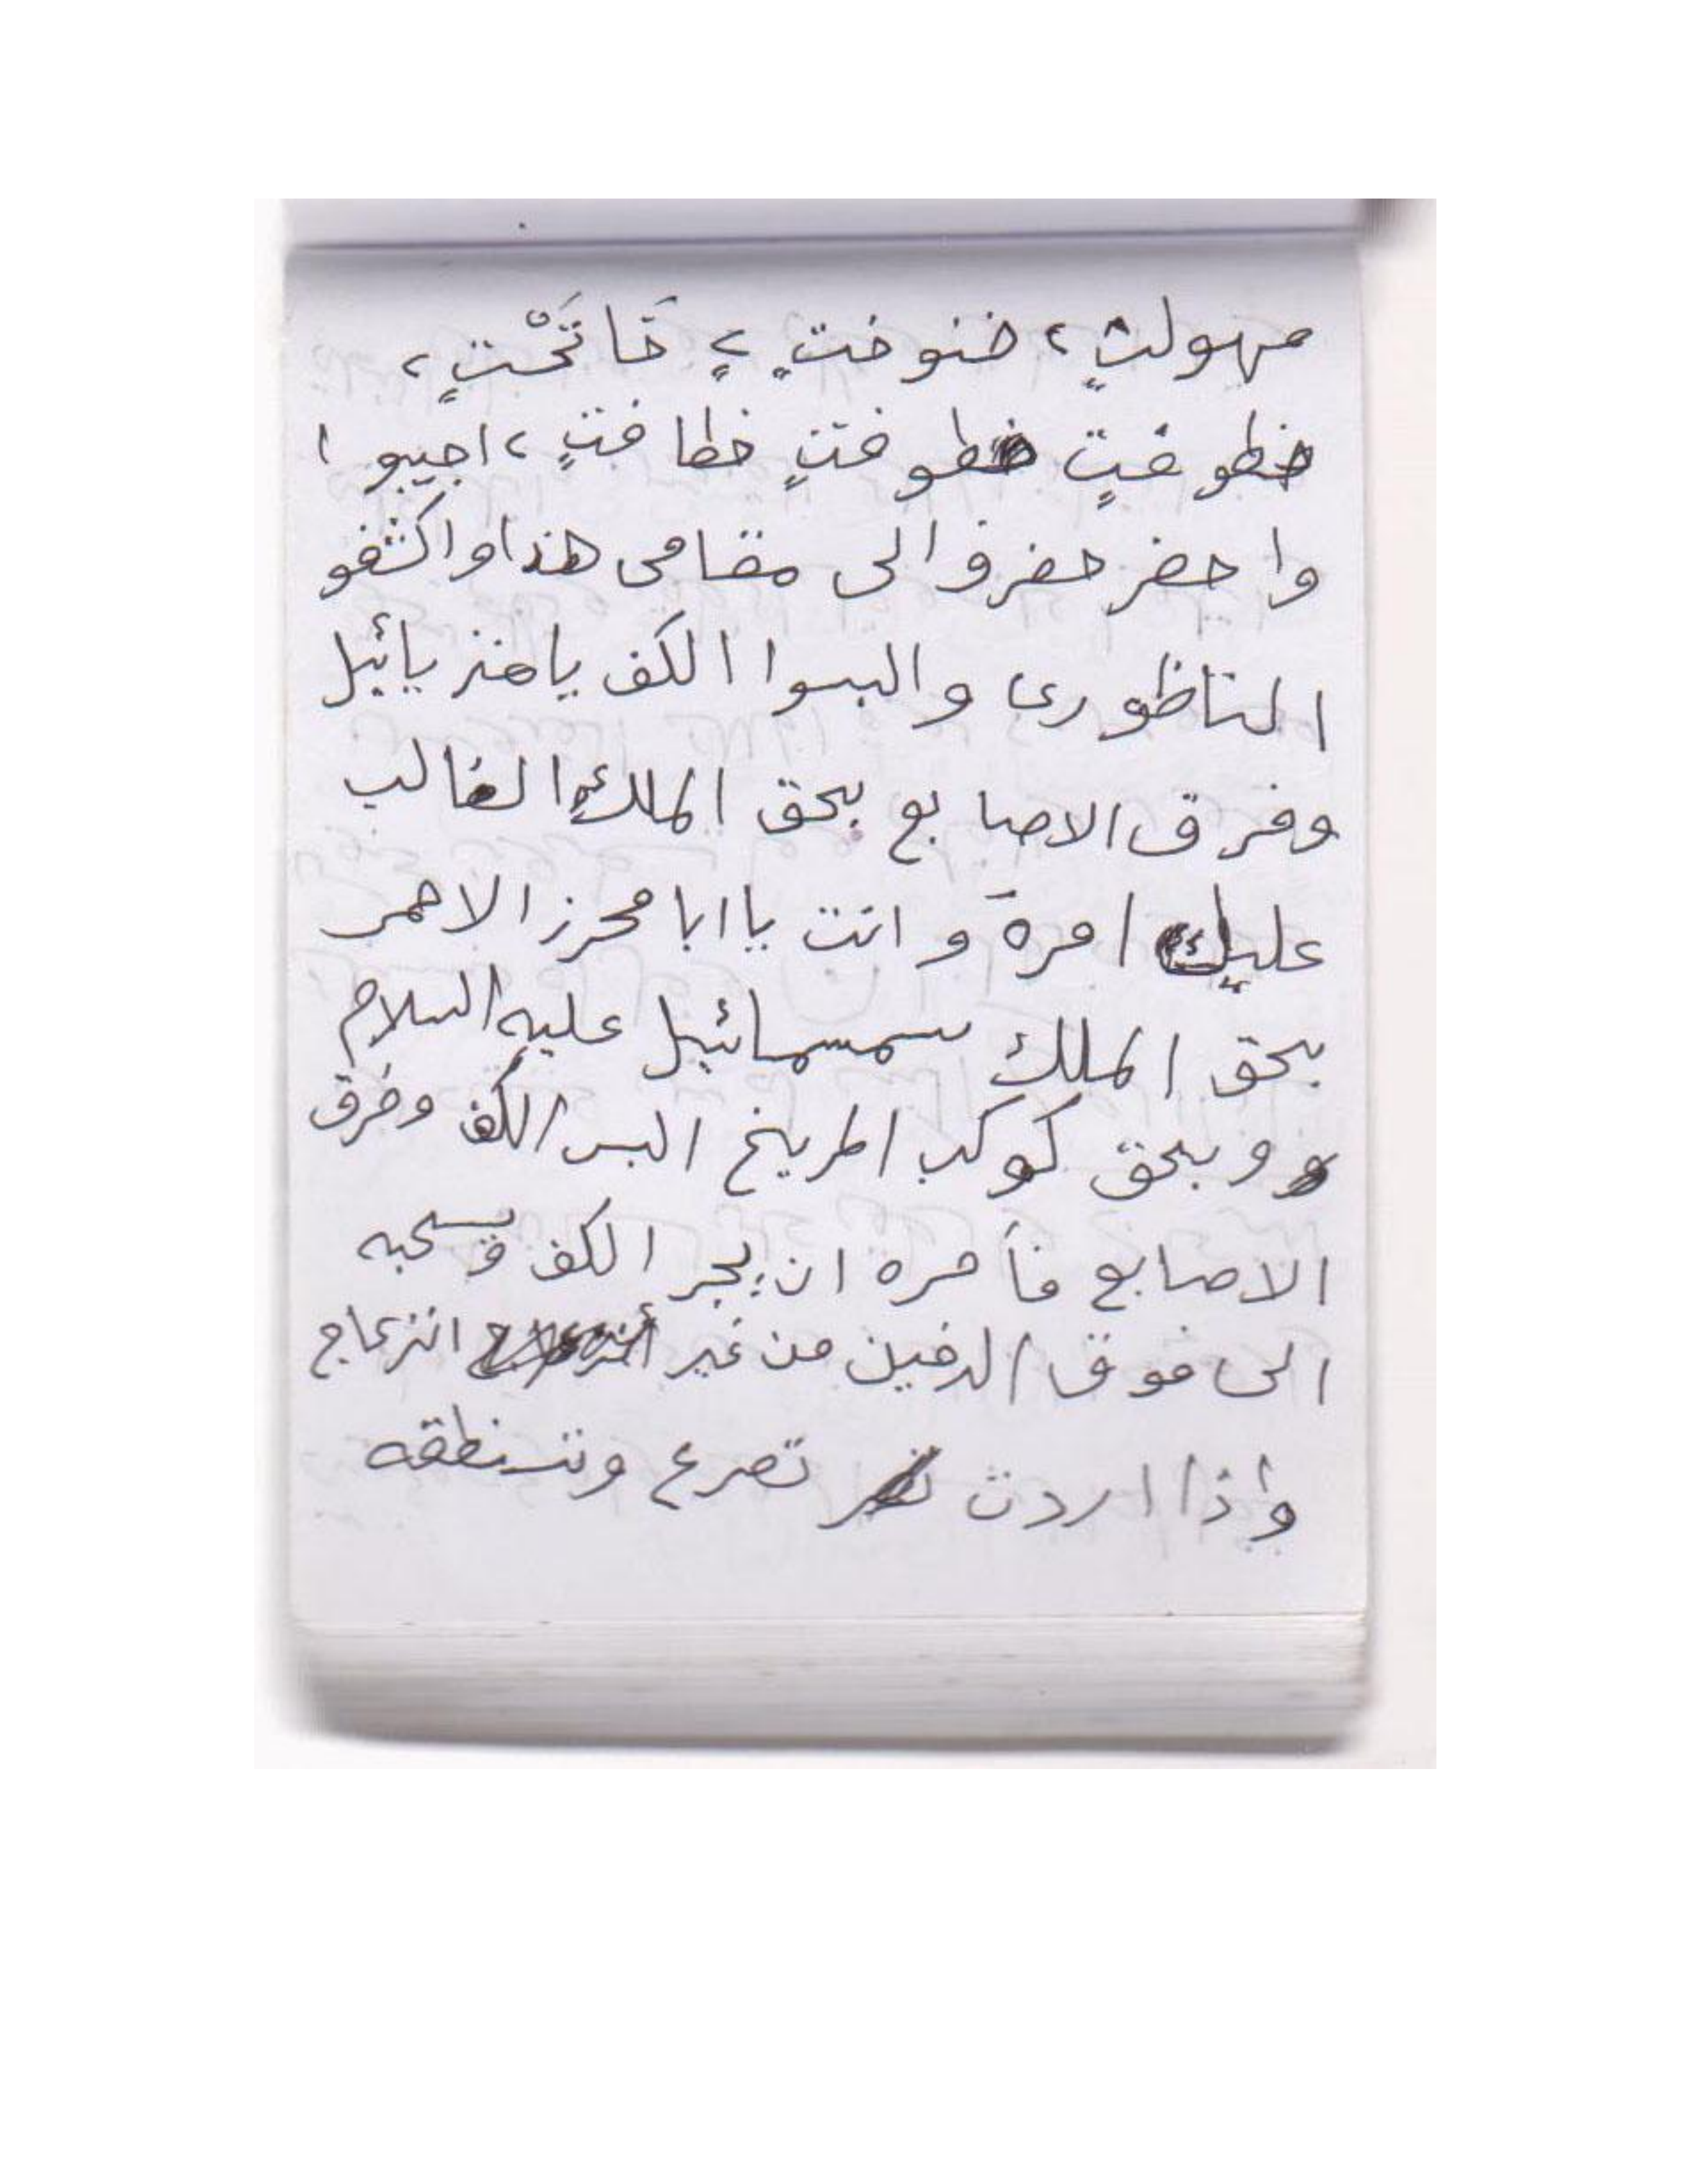 مهولتٍ ، خنوختٍ ، خَاتَحْتٍ ،
خطوفتٍ خطوفتٍ خطافتٍ ، اجيبوا
واحضر حضروا الى مقامى هذا واكشفو
الناظورى والبسوا الكف يا
وفرق الاصابع بحق الملك الغالب
عليك امره وانت يا ابا محرز الاحمر
بحق الملك سمسمائيل عليه السلام
و وبحق كوكب المريخ البس الكف وفرق
الاصابع فأمره ان يجر الكف ويسحبه
الى فوق الدفين من غير انزعاج
واذا اردت تصرع وتستنطقه